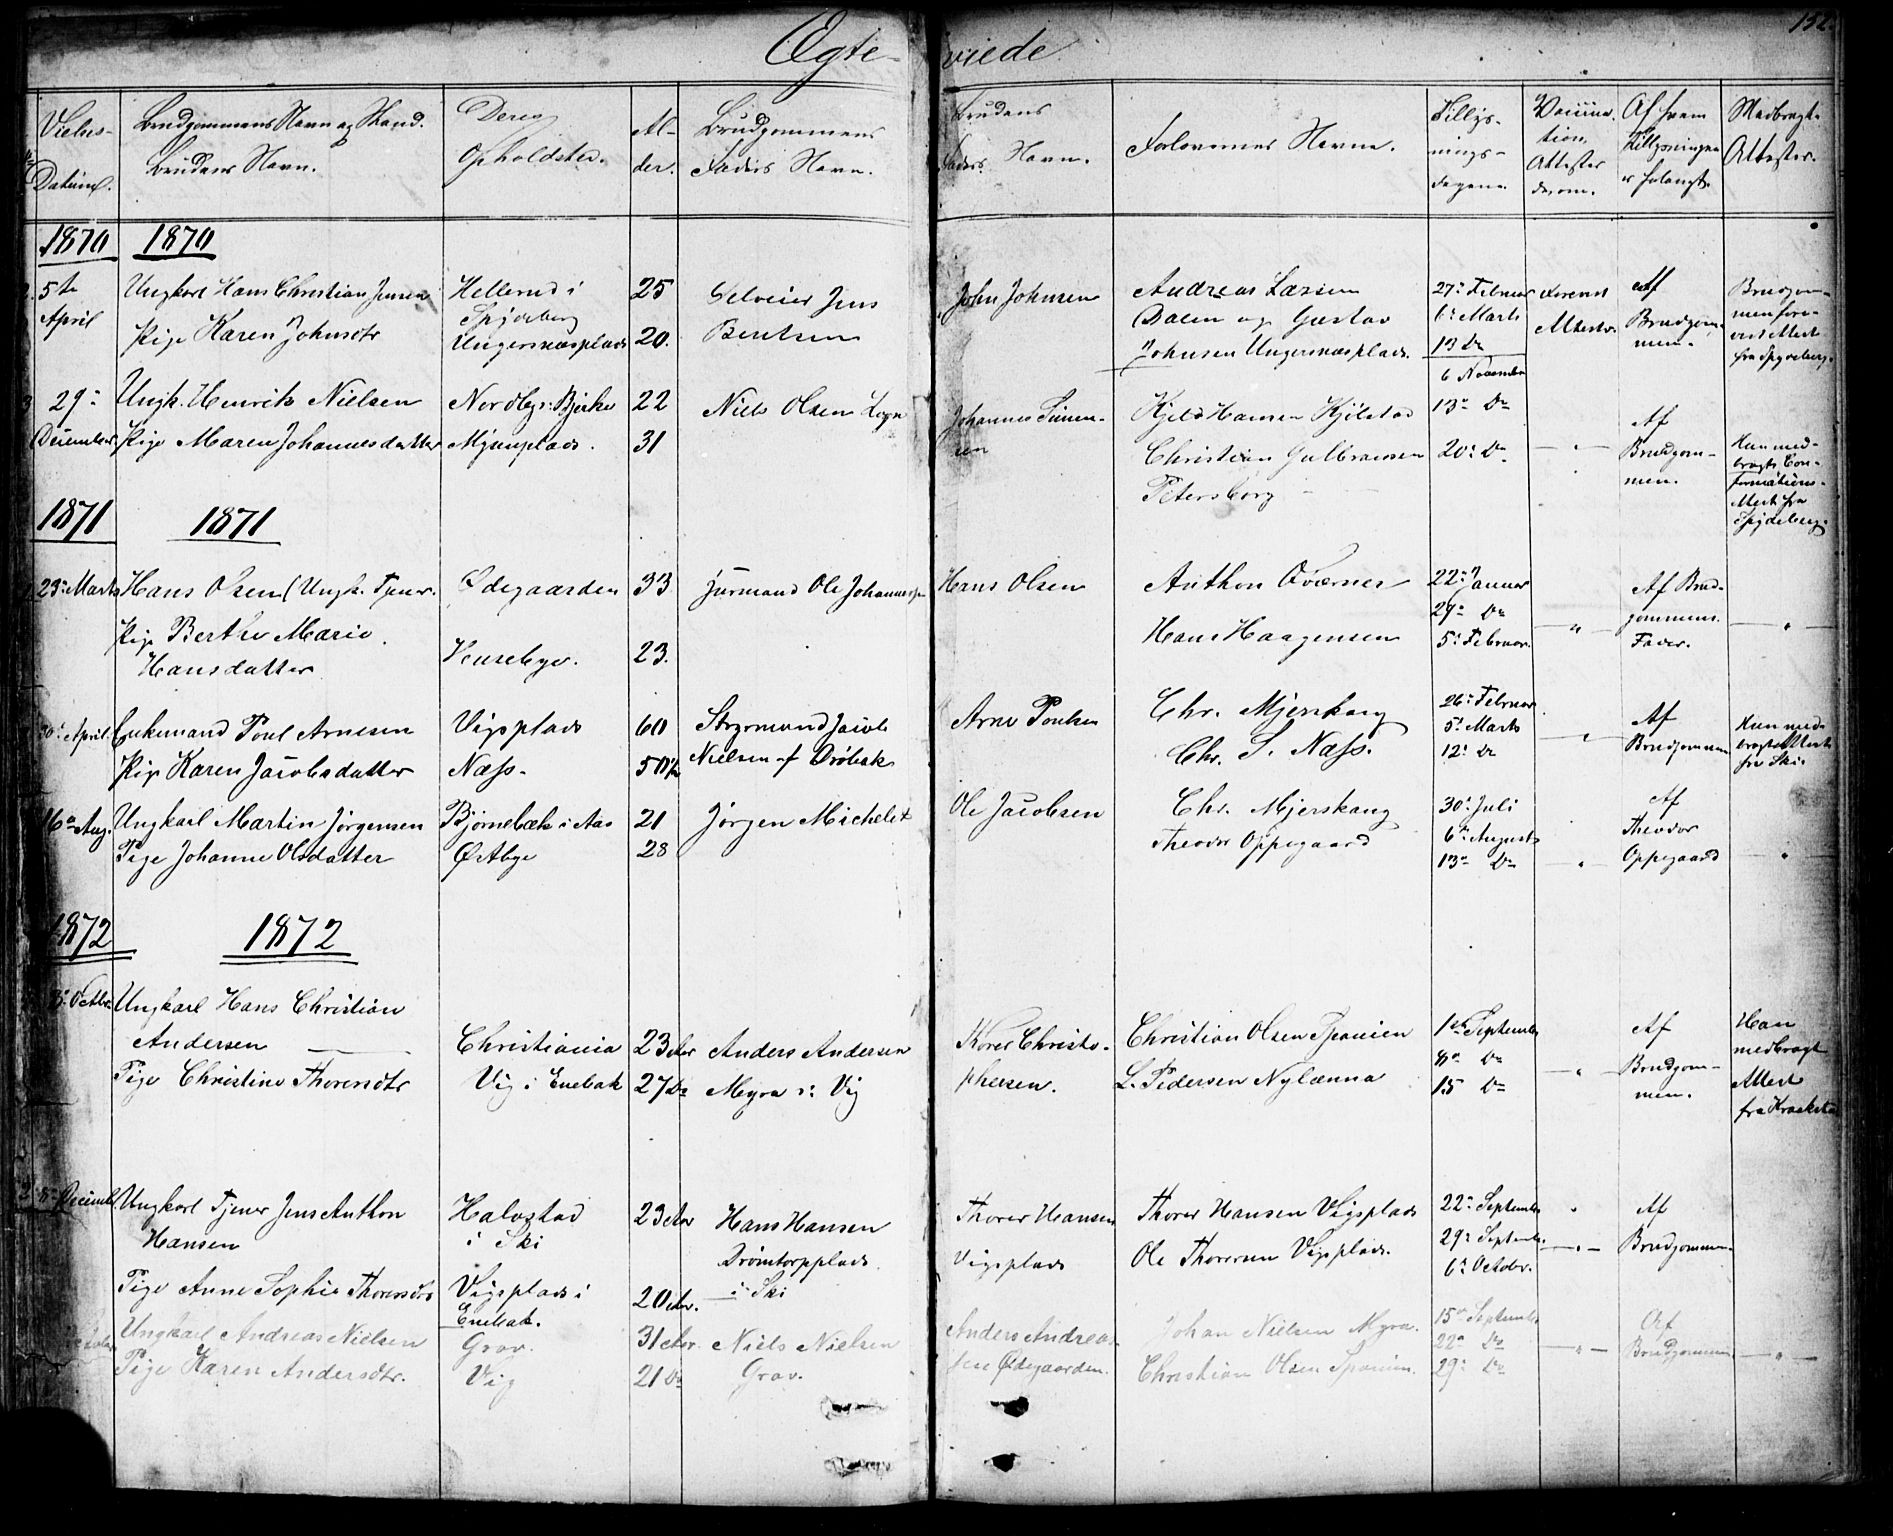 Ægte-
viede
152
Vielses-
Datum.
Brudgommens Navn og Stand.
Brudens Navn.
Deres
Opholdsted.
Al-
der.
Brudgommens
Faders Navn.
Brudens
Faders Navn.
Forlovernes Navne.
Tillys-
nings-
dagene.
Vaccina-
tion,
Attester
derom.
Af hvem
Tillysningen
er forlangt.
Medbragte
Attester.
1870 1870
5te
April
Ungkarl Hans Christian Jensen
Pige Karen Johnsdtr
Hellerud i
Spydeberg
Ungersnæsplads
25
20.
Selveier Jens
Bentsen
John Johnsen
Andreas Larsen
Dalen og Gustav
Johnsen Ungersnæsplads.
27de Februar
6te Marts
13 Do
Attester
Af
Brudgom-
men.
Brudgom-
men
Attest
fra Spydeberg.
29de
December
Ungk. Henrik Nielsen
Pige Maren Johannesdatter
Nordbg: Bjerke
Mjunplads.
22
31
Niels Olsen
Johannes Simen-
sen
Kjeld Hansen Kjølstad
Christian Gulbransen
Petersborg
6 November
13de Do
20de Do
Af
Brudgom-
men.
Hun med-
bragte Con-
firmations-
Attest fra
Spydeberg.
1871 1871
23de Marts
Hans Olsen (Ungk. Tjener.
Pige Berthe Marie
Hansdatter
Ødegaarden
33
23.
Huusmand Ole Johannessen
Hans Olsen
Anthon Qværner
Hans Haagensen
22de Januar
29de Do
5te Februar.
Af Brud-
gommens
Fader.
30te April
Enkemand Poul Arnesen
Pige Karen Jacobsdatter
Vigsplads
Næss.
60
50 1/2
Styrmand Jacob
Nielsen af Drøbak
Arne Poulsen
Chr. Mjerskaug
Chr. S. Næss.
26de Februar
5te Marts
12te Do
Af
Brudgommen
Hun med-
bragte Attest
fra Ski.
16de Aug.
Ungkarl Martin Jørgensen
Pige Johanne Olsdatter
Bjørnebæk i Aas
Østbye
21
28
Jørgen Michelet
Ole Jacobsen
Chr. Mjerskaug
Theodor Oppegaard
30te Juli
6te August
13de Do
Af
Theodor
Oppegaard
1872 1872
Octbr.
Ungkarl Hans Christian
Andersen
Pige Christine Thorersdtr
Christiania
Vig i Enebak
23 Aar
27 Do
Anders Andersen
Myra i Vig
Thorer Christo-
phersen.
Christian Olsen Spanien
L. Pedersen Nylænna
1ste September
8de Do
15 Do
Af
Brudgom-
men.
Han
medbragt
Attest
fra Kraakstad
8de Decembr.
Ungkarl Tjener Jens Anthon
Hansen
Pige Anne Sophie Thorersdtr
Halvstad
i Ski
Vigsplads i
Enebak.
23 Aar
20 Aar.
Hans Hansen
Drømtorpplads
i Ski
Thorer Hansen
Vigsplads
Thorer Hansen Vigsplads
Ole Thorersen Vigsplads.
22de September
29de Septembr.
6te October.
Af
Brudgommen.
Ungkarl Andreas Nielsen
Pige Karen Andersdtr.
Grav.
Vig
31 Aar.
21 Do
Niels Nielsen
Grav.
Anders Andrea-
sen Ødegaarden.
Johan Nielsen Myra.
Christian Olsen Spanien.
15de September
22de Do
29de Do
Af
Brudgommen